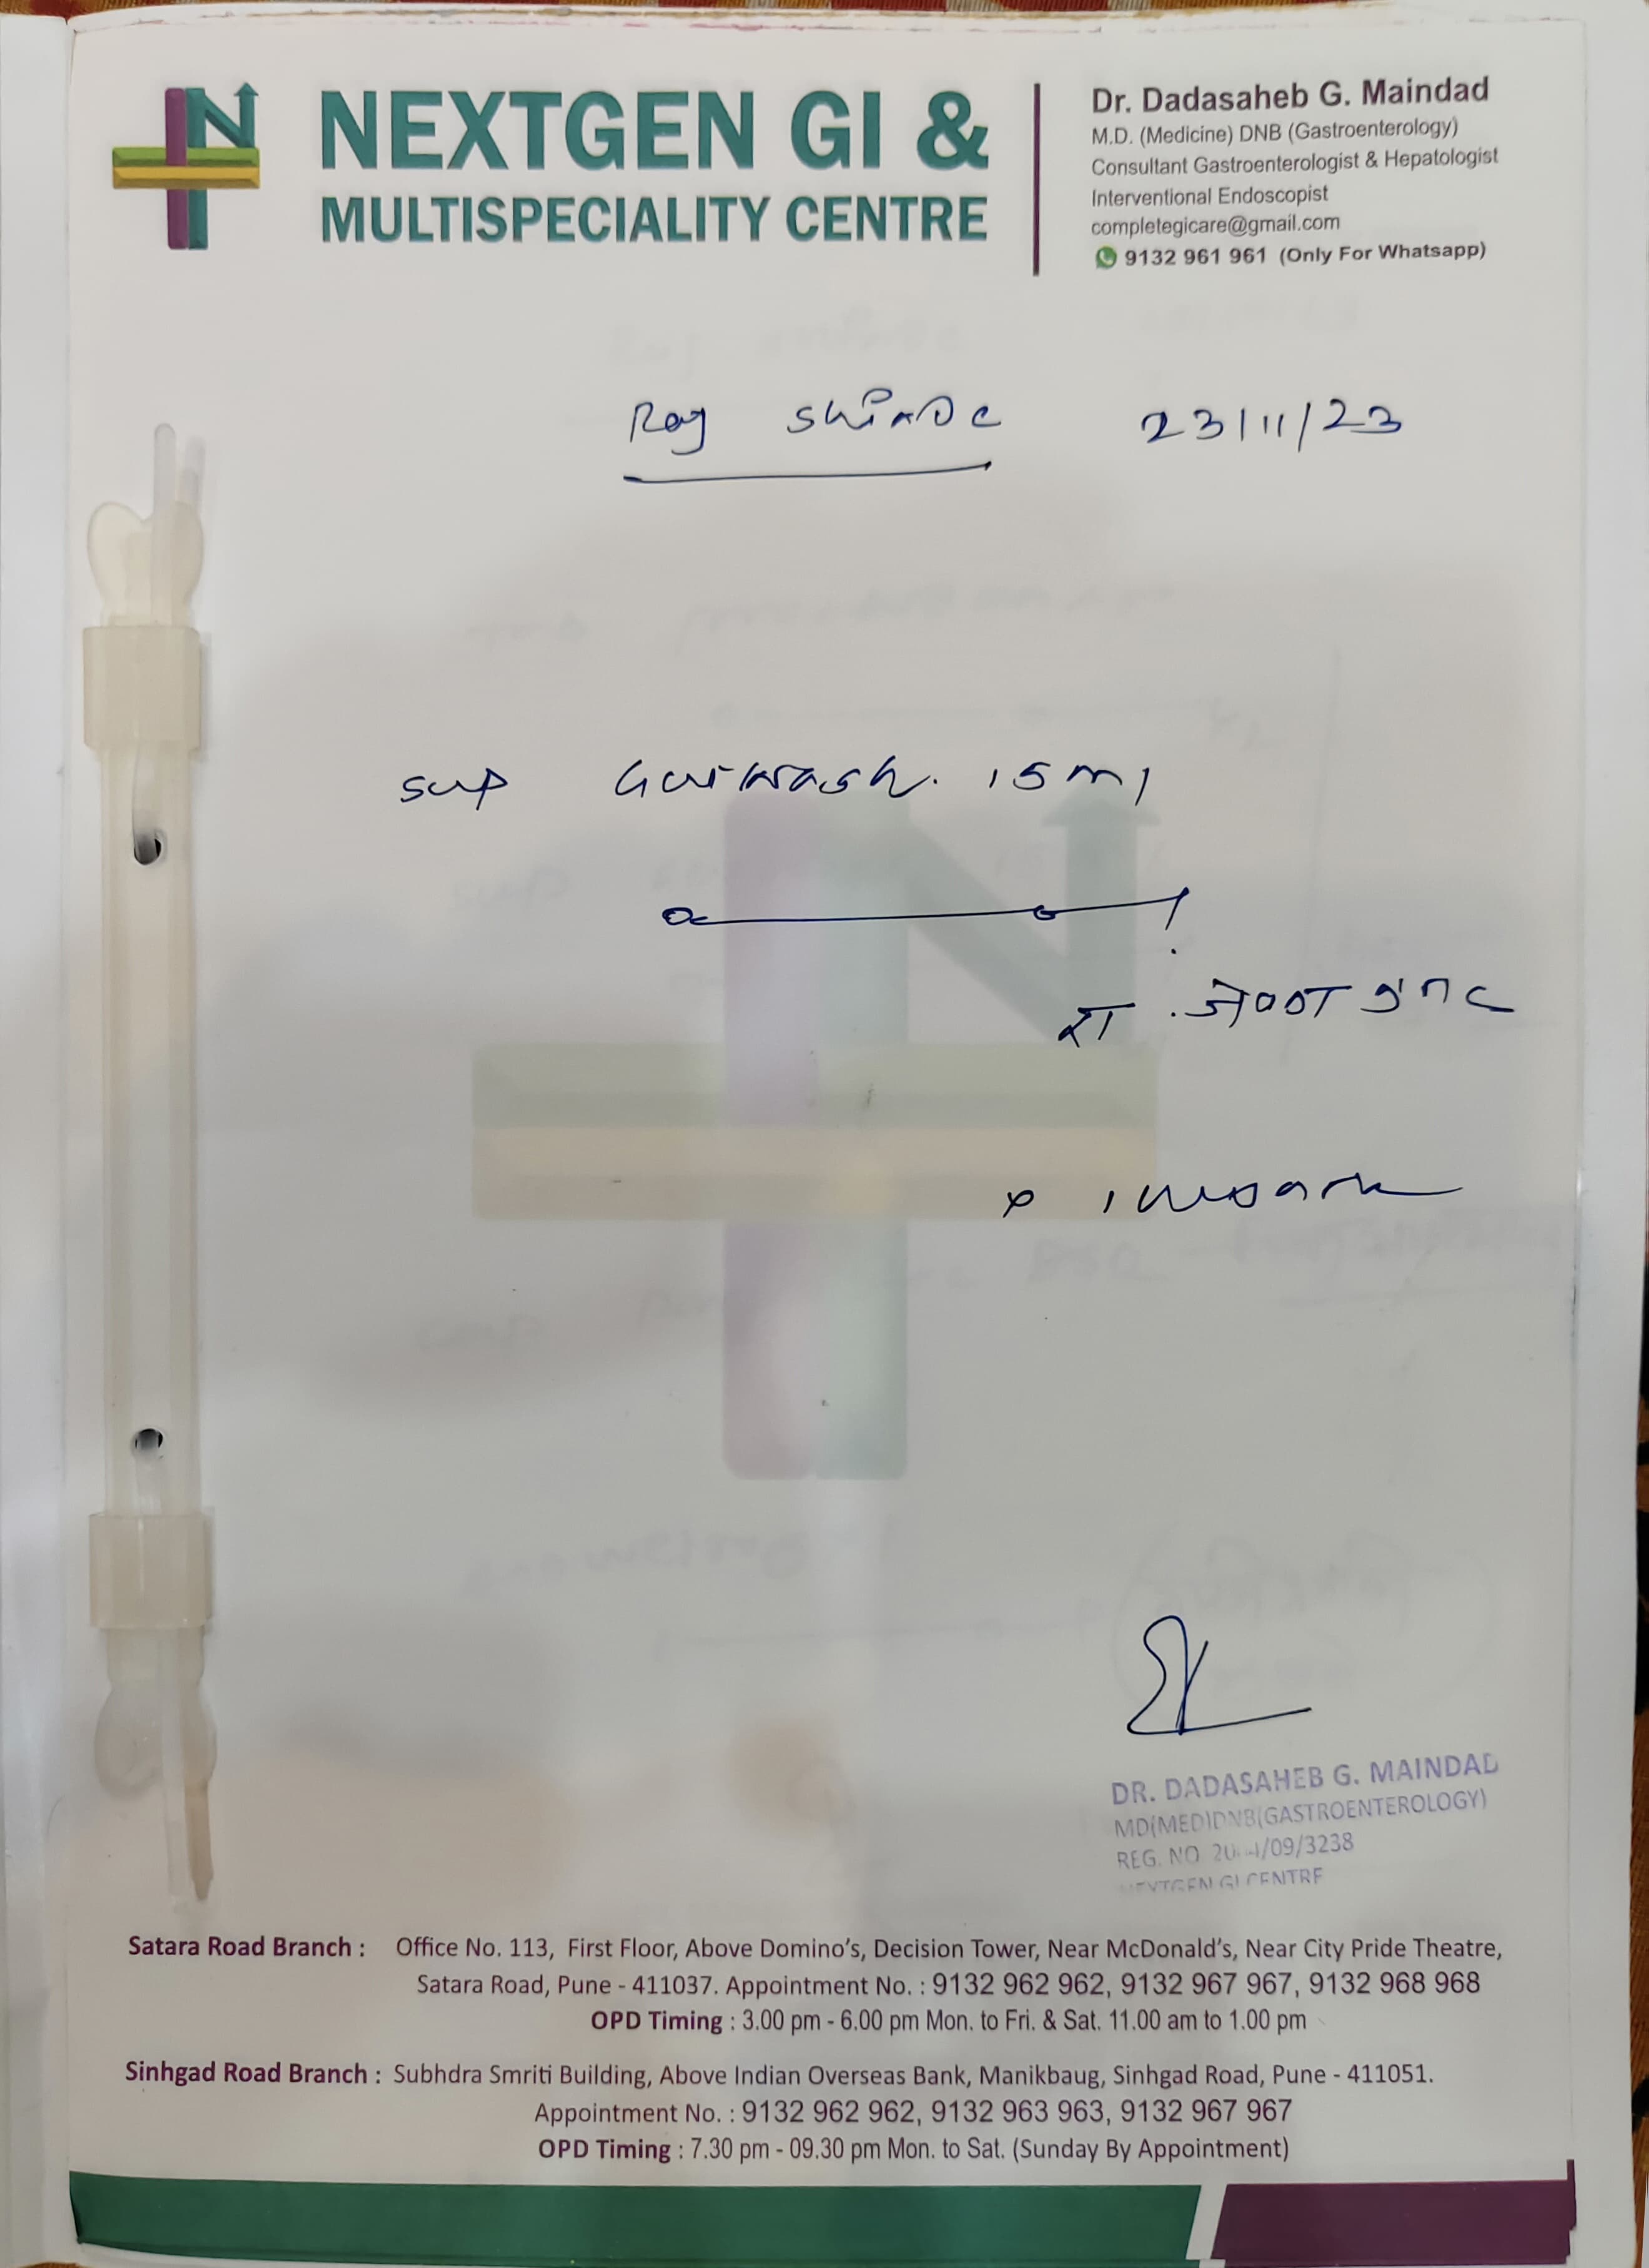 NEXTGEN GI &
MULTISPECIALITY CENTRE
Dr. Dadasaheb G. Maindad
M.D. (Medicine) DNB (Gastroenterology)
Consultant Gastroenterologist & Hepatologist
Interventional Endoscopist
completegicare@gmail.com
9132 961 961 (Only For Whatsapp)
Raj Shinde 23/11/23
syp Gutwash. 15 ml
DR. DADASAHEB G. MAINDAD
MD(MED)DNB(GASTROENTEROLOGY)
REG. NO /09/3238
NEXTGEN GI CENTRE
Satara Road Branch : Office No. 113, First Floor, Above Domino's, Decision Tower, Near McDonald's, Near City Pride Theatre,
Satara Road, Pune - 411037. Appointment No. : 9132 962 962, 9132 967 967, 9132 968 968
OPD Timing : 3.00 pm - 6.00 pm Mon. to Fri. & Sat. 11.00 am to 1.00 pm
Sinhgad Road Branch : Subhdra Smriti Building, Above Indian Overseas Bank, Manikbaug, Sinhgad Road, Pune - 411051.
Appointment No. : 9132 962 962, 9132 963 963, 9132 967 967
OPD Timing : 7.30 pm - 09.30 pm Mon. to Sat. (Sunday By Appointment)